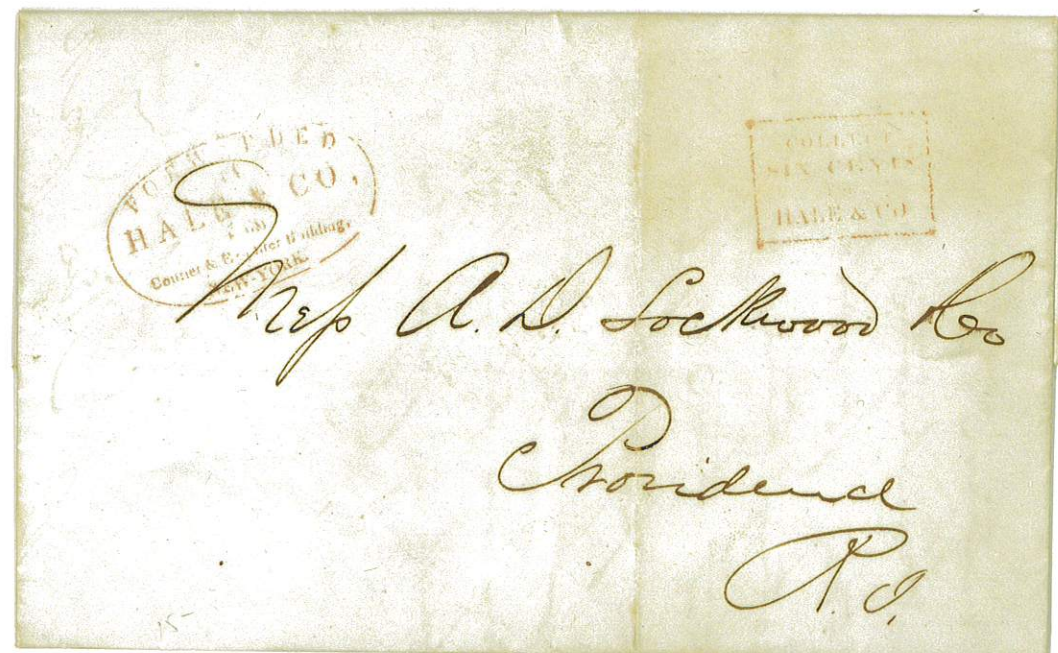 FORWARDED
HALE & CO.
FROM
Courier & Enquirer Building,
NEW-YORK.
COLLECT
SIX CENTS
HALE & CO
Mess A. D. Lockwood & Co
Providence
R. I.
15